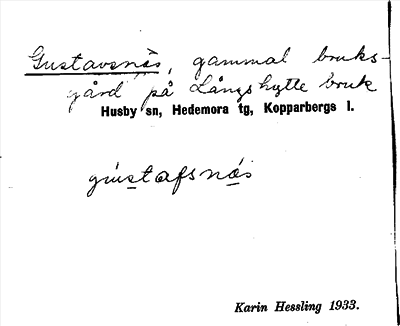 Gustavsnäs, gammal bruks-
gård på Långshytte bruk
Husby sn, Hedemora tg, Kopparbergs l.
gústafsnás
Karin Hessling 1933.